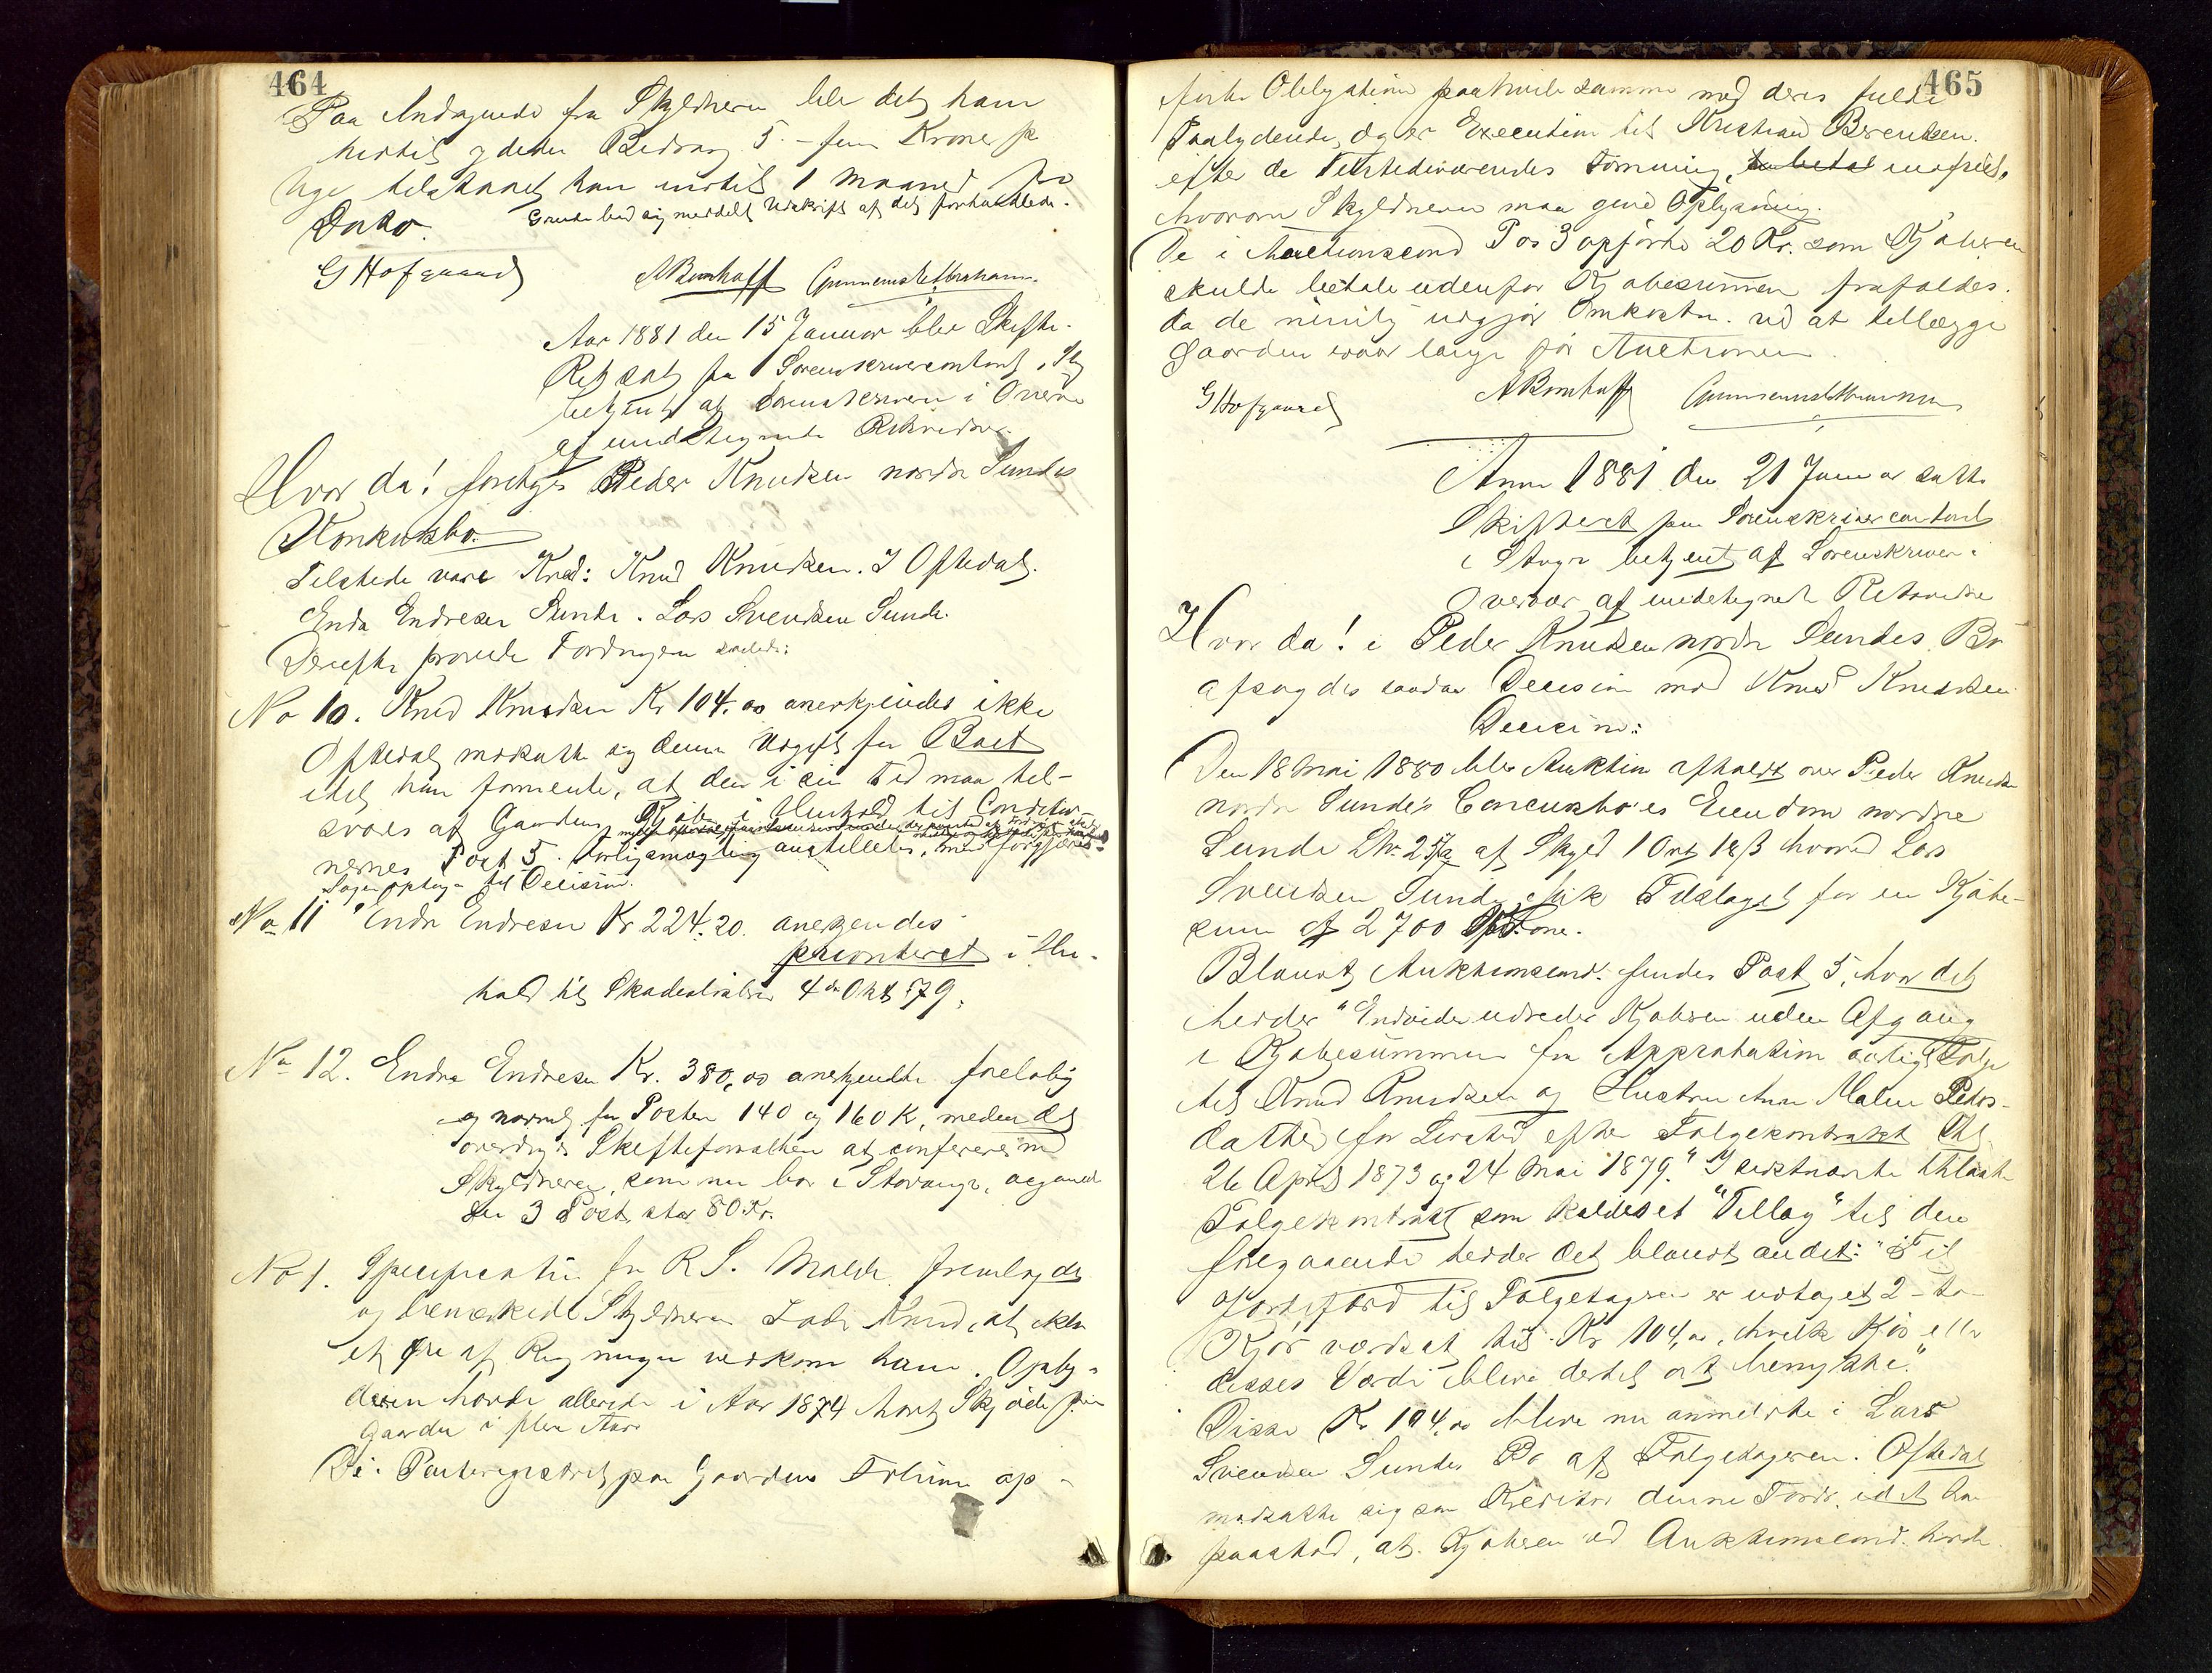 464
Paa Andragende fra Skyldneren blev det ham
hidtil ydede Bidrag 5 - fem Kroner p
Uge tilstaaet ham indtil 1 Maaned fra
Dato. Grude bad sig meddelt Udskrift af det forhandlede.
G Hofgaard
Aar 1881 den 15 Januar blev Skifte-
Ret sat paa Sorenskrivercontoret i Stv
betjent af Sorenskriveren i Overv
af undertegnede Retsvidner.
Hvor da! foretoges Peder Knudsen nordre Sundes
Konkursbo.
Tilstede vare Kred: Knud Knudsen. I Oftedal.
Endre Endresen Sunde. Lars Svendsen Sunde.
Derefter prøvede Fordringer saaledes:
No 10. Knud Knudsen Kr 104.00 anerkjendes ikke
Oftedal modsatte sig denne Udgift for Boet
idet han formente, at den i sin Tid maa til-
svares af Gaardens Kjøber i Henhold til Conditio-
nernes Post 5. Forligsmægling anstilledes, men forgjæves.
Sagen optages til Decision.
No 11 Endre Endresen Kr 224.20. anerkjendes
prioriteret i Hen-
hold til Skadesløsbrev 4de Okt 79.
No 12. Endre Endresen Kr. 380,00 anerkjendte foreløbig
og navnlig for Posten 140 og 160 K, medens det
overdroges Skifteforvalteren at conferere med
Skyldneren, som nu bor i Stavanger, angaaende
den 3 Post, stor 80 Kr.
No 1. Specification fra R S. Malde. fremlagdes
og bemærkede Skyldneren Knud, at ikke
et Øre af Regningen vedkom ham. Opby-
deren havde allerede i Aar 1874 havt Skjøde paa
Gaarden i flere Aar
De i Panteregistret paa Gaardens Folium op-
465
førte Obligationer paahvile samme med deres fulde
Paalydende, og er Execution til Kristian Berentsen.
efter de Tilstedeværendes Formening, indfriet,
hvorom Skyldneren maa give Oplysning.
De i Auctionscond Pos 3 opførte 20 Kr. som Kjøberen
skulde betale udenfor Kjøbesummen frafaldes.
da de nemlig udgjør Omkostn. ved at tillægge
Gaarden svar længe før Auctionen.
G Hofgaard
Anno 1881 den 21 Januar sattes
Skifteret paa Sorenskrivercontoret
i Stvgr betjent af Sorenskriver i
Overvær af undertegnede Retsvidner
Hvor da! i Peder Knudsen nordre Sundes Bo
afsagdes saadan Decision mod Knud Knudsen
Decision:
Den 18 Mai 1880 blev Auktion afholdt over Peder Knudsen
nordre Sunde's Concursbo's Eiendom nordre
Sunde LNr. 25a af Skyld 1 Ort 18 ß hvorved Lars
Svendsen Sunde fik Tilslaget for en Kjøbe-
sum af 2700 Kroner.
Blandt Auktionscond. findes Post 5, hvor det
hedder "Endvidere udreder Kjøberen uden Afgang
i Kjøbesummen fra Approbation aarligt Folge
til Knud Knudsen og Hustru Ane Malene Peders-
datter for Livstid efter Folgekontrakt Thl.
26 April 1873 og 24 Mai 1879." I sidstnævnte thinglæste
Folgekontrakt som kaldes et "Tillæg" til den
foregaaende hedder det blandt andet: "Til
Jordsfærd til Folgetageren er udtaget 2 - to
Kjør værdsat til Kr 104,00, hvilke Kjør eller
disses Værdi bliver dertil at benytte."
Disse Kr. 104,00 bleve nu anmeldte i Lars
Svendsen Sundes Bo af Folgetageren. Oftedal
modsatte sig som Kreditor denne Fordr. idet han
paastod, at Kjøberen ved Auktionscond. havde